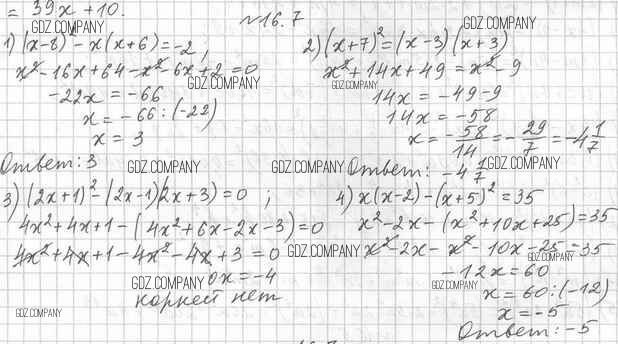 = 39x + 10.
№16.7
1) (x-8)² - x(x+6) = -2,
x² - 16x + 64 - x² - 6x + 2 = 0
-22x = -66
x = -66 : (-22)
x = 3
Ответ: 3
2) (x+7)² = (x-3)(x+3)
x² + 14x + 49 = x² - 9
14x = -49 - 9
14x = -58
x = -58/14 = -29/7 = -4 1/7
Ответ: -4 1/7
3) (2x+1)² - (2x-1)(2x+3) = 0 ;
4x² + 4x + 1 - (4x² + 6x - 2x - 3) = 0
4x² + 4x + 1 - 4x² - 4x + 3 = 0
0x = -4
корней нет
4) x(x-2) - (x+5)² = 35
x² - 2x - (x² + 10x + 25) = 35
x² - 2x - x² - 10x - 25 = 35
-12x = 60
x = 60 : (-12)
x = -5
Ответ: -5
GDZ.COMPANY
GDZ.COMPANY
GDZ.COMPANY
GDZ.COMPANY
GDZ.COMPANY
GDZ.COMPANY
GDZ.COMPANY
GDZ.COMPANY
GDZ.COMPANY
GDZ.COMPANY
GDZ.COMPANY
GDZ.COMPANY
GDZ.COMPANY